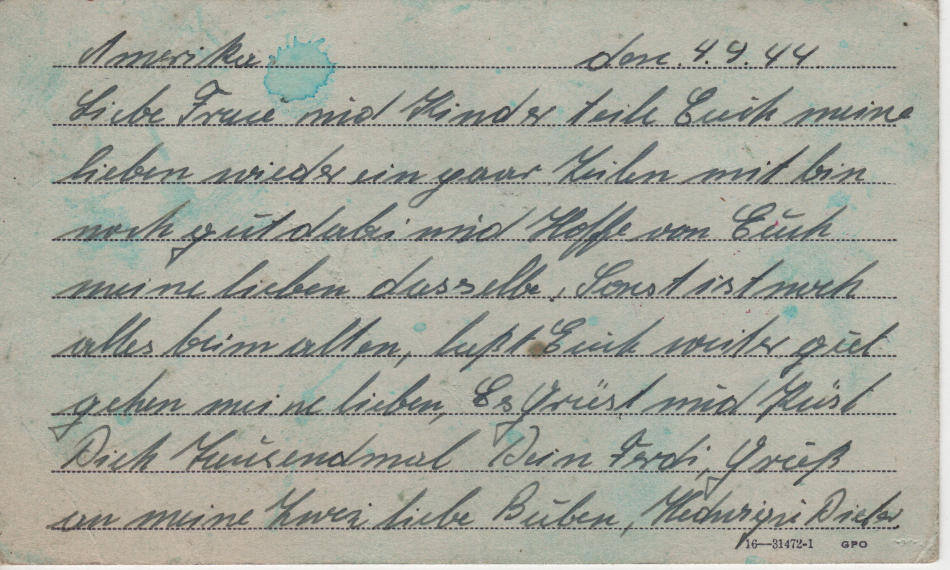 Amerika. den. 4.9.44
Liebe Fraú und Kinder teile Eúch meine
lieben wieder ein paar Zeilen mit bin
noch gút dabei und Hoffe von Eúch
meine lieben dasselbe. Sonst ist noch
alles beim alten, laßt Eúch weiter gút
gehen meine lieben, Es Grüst und Küst
Dich Taúsendmal Dein Ferdi, Grúß
an meine Zwei liebe Búben, Dieter
16—31472-1 GPO